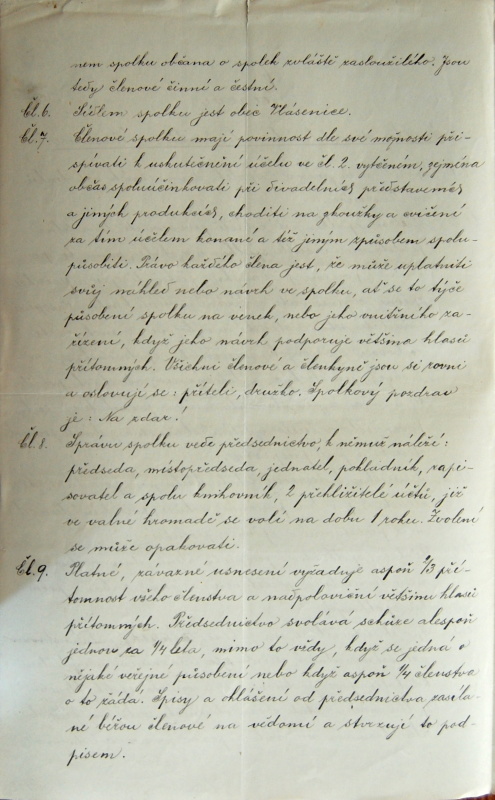 nem spolku občana o spolek zvláště zasloužilého. Jsou
tedy členové činní a čestní.
Čl. 6. Sídlem spolku jest obec Vlásenice.
Čl. 7. Členové spolku mají povinnost dle své možnosti při-
spívati k uskutečnění účelu ve čl. 2. vytčeném, zejména
občas spoluúčinkovati při divadelních představeních
a jiných produkcích, choditi na zkoužky a cvičení
za tím účelem konané a též jiným způsobem spolu-
působiti. Právo každého člena jest, že může uplatniti
svůj náhled nebo návrh ve spolku, ať se to týče
působení spolku na venek, nebo jeho vnitřního za-
řízení, když jeho návrh podporuje většina hlasů
přítomných. Všichni členové a členkyně jsou si rovni
a oslovují se: příteli, družko. Spolkový pozdrav
je: Na zdar!
Čl. 8. Správu spolku vede předsednictvo, k němuž náleží:
předseda, místopředseda, jednatel, pokladník, zapi-
sovatel a spolu knihovník, 2 přehlížitelé účtů, již
ve valné hromadě se volí na dobu 1 roku. Zvolení
se může opakovati.
Čl. 9. Platné, závazné usnesení vyžaduje aspoň 2/3 pří-
tomnost všeho členstva a nadpoloviční většinu hlasů
přítomných. Předsednictvo svolává schůze alespoň
jednou za 1/4 léta, mimo to vždy, když se jedná o
nějaké veřejné působení nebo když aspoň 1/4 členstva
o to žádá. Spisy a ohlášení od předsednictva zasíla-
né běžou členové na vědomí a stvrzují to pod-
pisem.